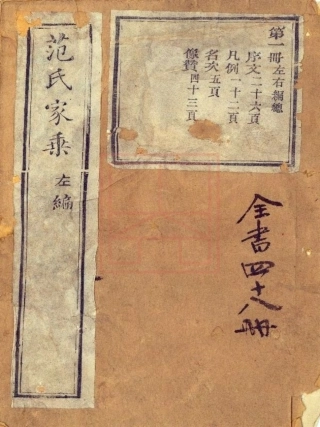 第一冊左右綱總
序文二十六頁
凡例一十二頁
名次五頁
像贊四十三頁
全書四十八冊
范氏家乘 左編